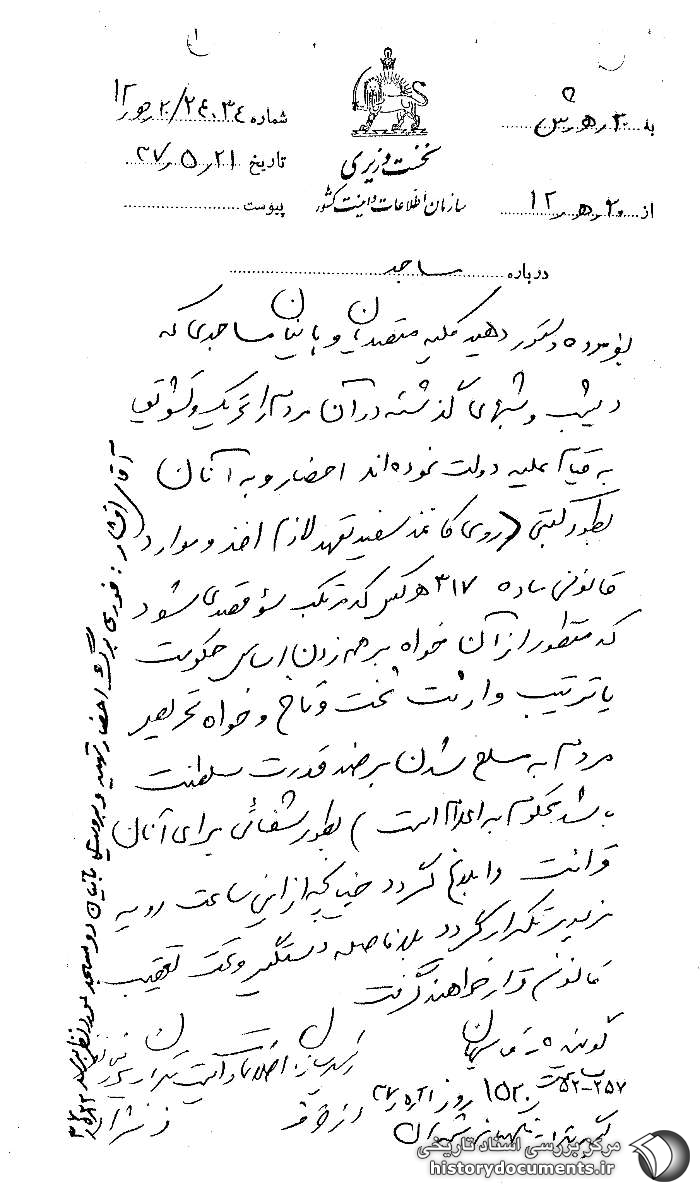 به ۳۰ ه ۳
از ۲۰ ه ۱۲
نخست وزیری
سازمان اطلاعات و امنیت کشور
شماره ۲۴۰۳۴/۲۰ ه ۱۲
تاریخ ۳۷/۵/۲۱
پیوست
درباره مساجد
بفرموده دستور دهید کلیه متصدیان و بانیان مساجدی که
دیشب و شبهای گذشته در آن مردم را تحریک و تشویق
به قیام علیه دولت نموده‌اند احضار و به آنان
بطور کتبی (روی کاغذ سفید تعهد لازم اخذ و موارد
قانونی ماده ۳۱۷ هر کس که مرتکب سوء قصدی شود
که منظور از آن خواه بر هم زدن اساس حکومت
یا ترتیب وارثت تخت و تاج و خواه تحریص
مردم به مسلح شدن بر ضد قدرت سلطنت
باشد محکوم به اعدام است) بطور شفائی برای آنان
قرائت و ابلاغ گردد چنانچه از این ساعت رویه
مزبور تکرار گردد بلافاصله دستگیر و تحت تعقیب
قانونی قرار خواهند گرفت
گوینده
ساعت ۱۵۲۰ روز
رئیس سازمان اطلاعات و امنیت تهران
از طرف
آقای افشار: فوری برگ احضار تهیه و بانیان دو مسجد مورد نظر
مرکز بررسی اسناد تاریخی
historydocuments.ir